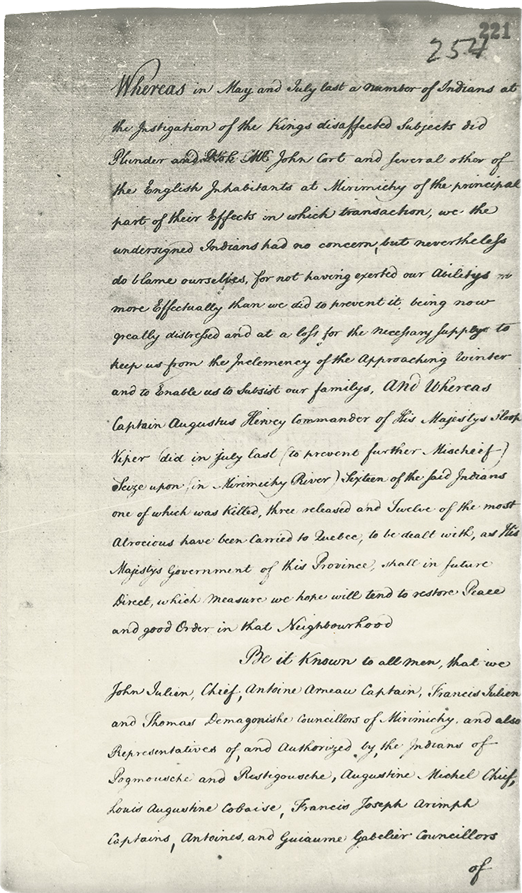 221
254
Whereas in May and July last a number of Indians at
the Instigation of the Kings disaffected Subjects did
Plunder and Mr John Cort and several other of
the English Inhabitants at Mirimichy of the principal
part of their Effects in which transaction, we the
undersigned Indians had no concern, but nevertheless
do blame ourselves, for not having exerted our Abilitys
more Effectually than we did to prevent it, being now
greatly distressed and at a loss for the necessary supplys to
keep us from the Inclemency of the Approaching Winter
and to Enable us to Subsist our familys, And Whereas
Captain Augustus Hervey Commander of His Majestys Sloop
Viper did in July last (to prevent further Mischeef)
Seize upon (in Mirimichy River) Sixteen of the said Indians
one of which was killed, three released and Twelve of the most
Atrocious have been carried to Quebec, to be dealt with, as His
Majestys Government of this Province, shall in future
Direct, which measure we hope will tend to restore Peace
and good Order in that Neighbourhood
Be it Known to all men, that we
John Julien, Chief, Antoine Arneau Captain, Francis Julien
and Thomas Demagonishe Councillors of Mirimichy, and also
Representatives of, and Authorized by, the Indians of
Pogmousche and Restigousche, Augustine Michel Chief,
Louis Augustine Cobaise, Francis Joseph Arimph
Captains, Antoines, and Guiaume Gabelier Councillors
of